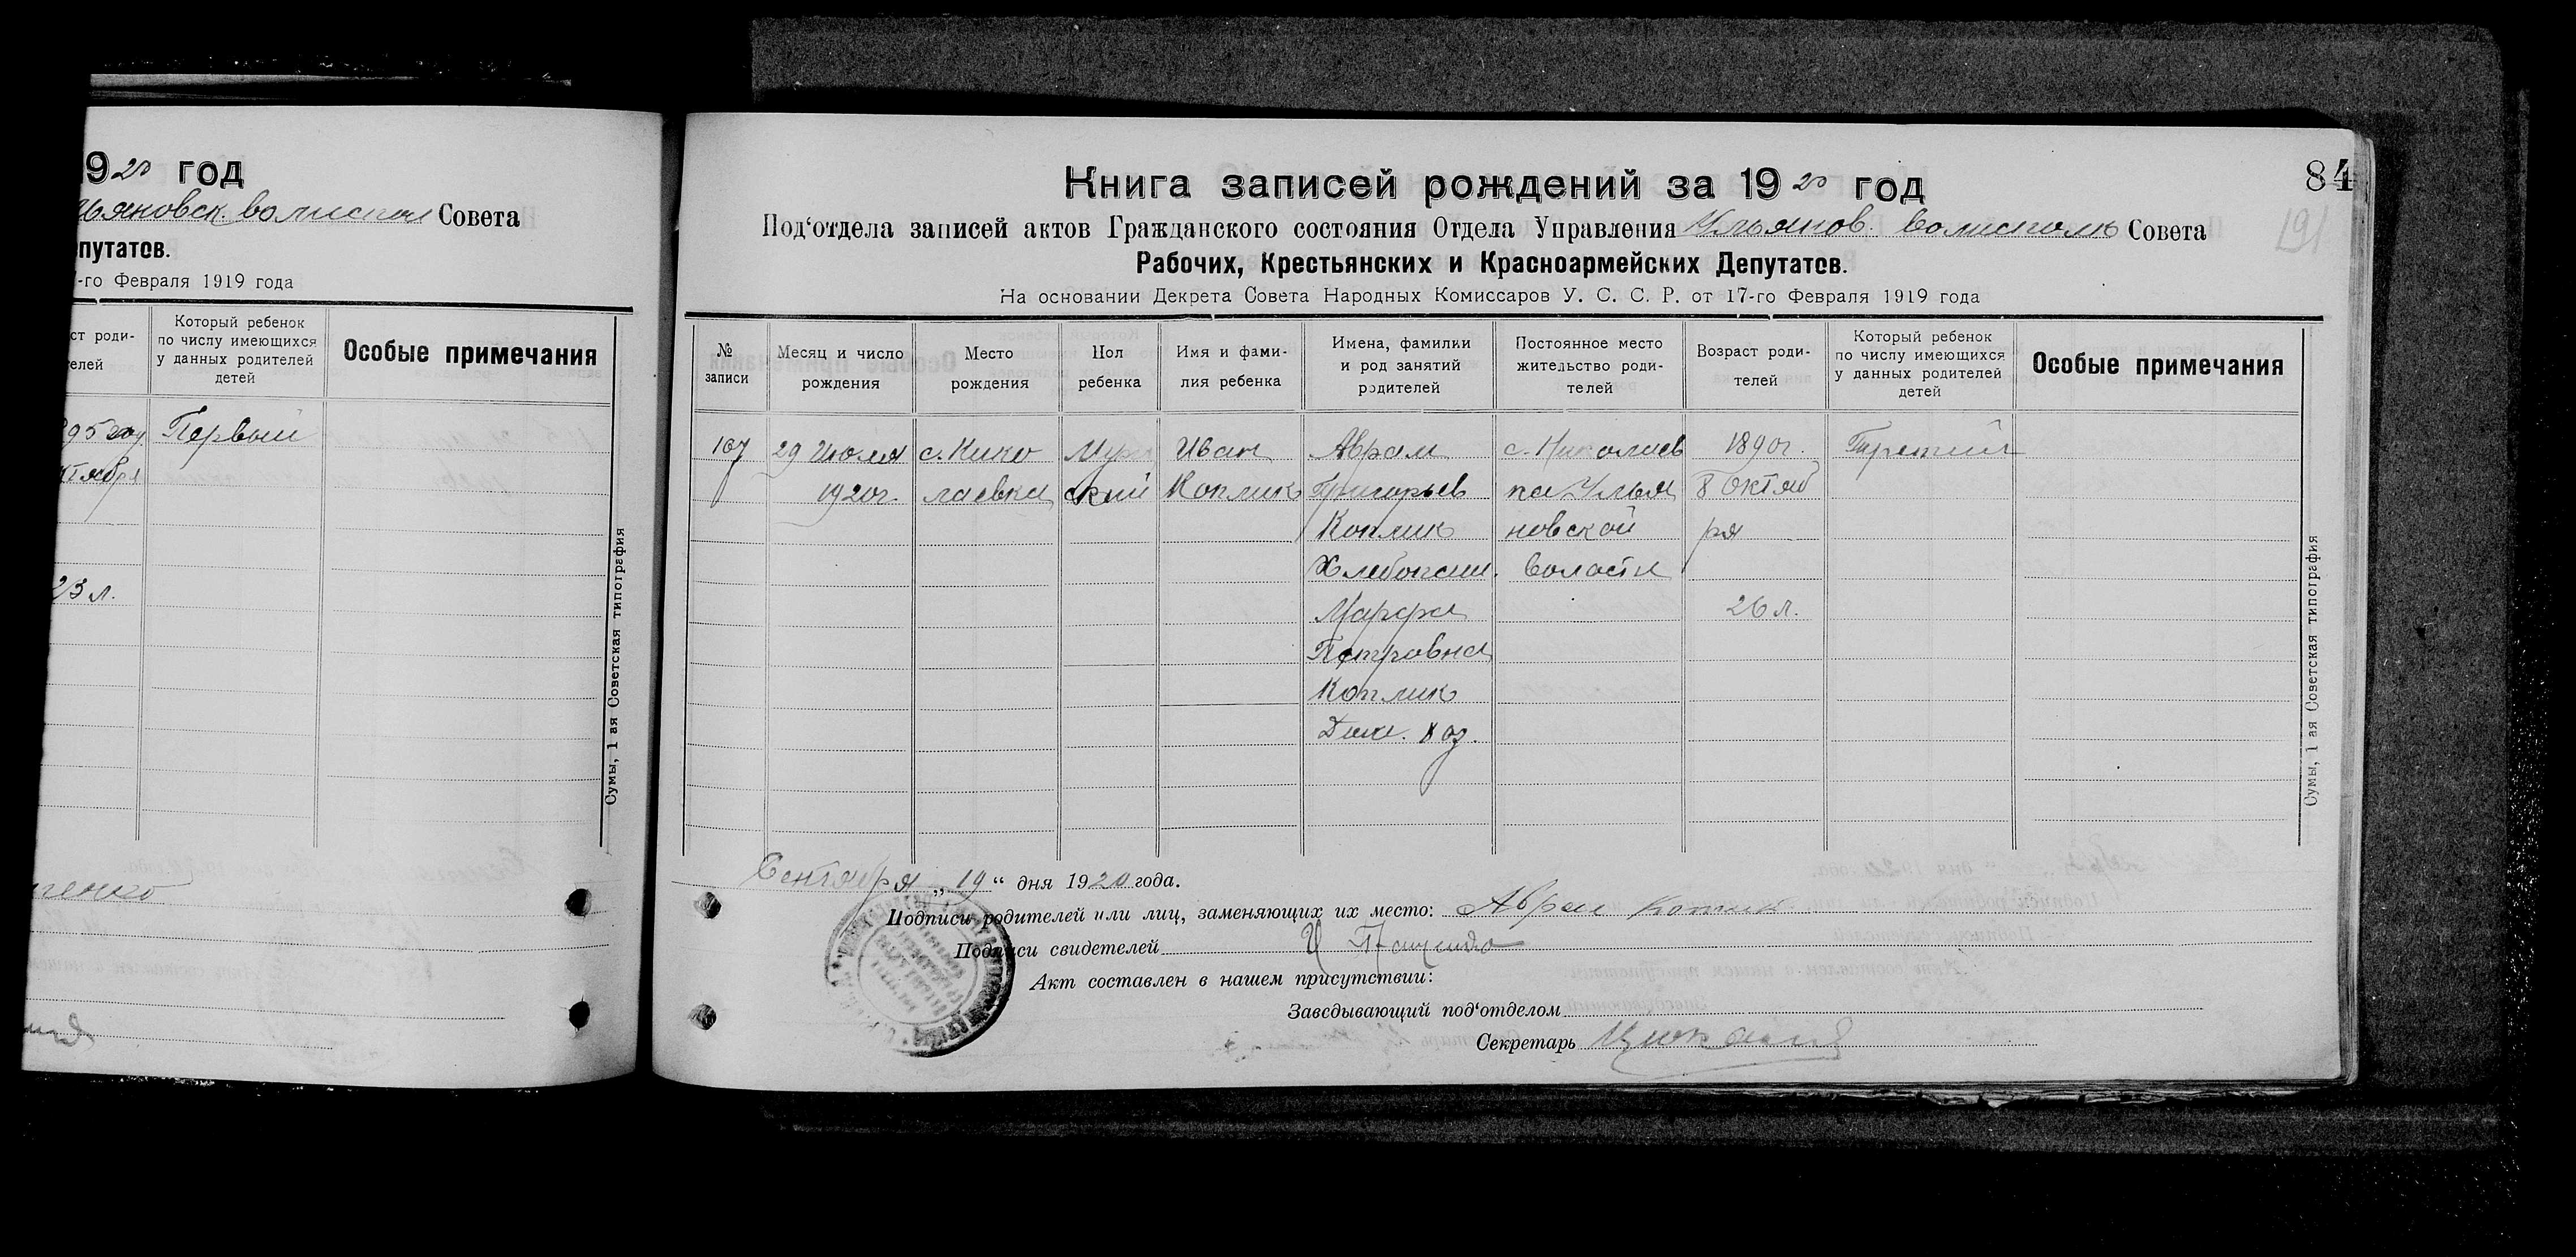 920 год
льяновск. волиспол Совета
путатов.
-го Февраля 1919 года
ст роди-
телей
Который ребенок
по числу имеющихся
у данных родителей
детей
Особые примечания
895 году Первый
ктября
23 л.
Сумы, 1 ая Советская типография
84
191
Книга записей рождений за 1920 год
Под‘отдела записей актов Гражданского состояния Отдела Управления Ульянов. волисполк Совета
Рабочих, Крестьянских и Красноармейских Депутатов.
На основании Декрета Совета Народных Комиссаров У. С. С. Р. от 17-го Февраля 1919 года
№
записи
Месяц и число
рождения
Место
рождения
Пол
ребенка
Имя и фами-
лия ребенка
Имена, фамилии
и род занятий
родителей
Постоянное место
жительство роди-
телей
Возраст роди-
телей
Который ребенок
по числу имеющихся
у данных родителей
детей
Особые примечания
167 29 Июля с. Нико Муж Иван Аврам с. Николаев 1890г. Третий
1920г. лаевка ский Коплик Григорьев ка Улья 8 Октяб
Коплик новской ря
Хлебопаш. волости
Марфа 26 л.
Петровна
Коплик
Дом. хоз.
Сумы, 1 ая Советская типография
Сентября „19“ дня 1920 года.
Подписи родителей или лиц, заменяющих их место: Аврам Коплик
Подписи свидетелей
Акт составлен в нашем присутствии:
Заведывающий под‘отделом
Секретарь